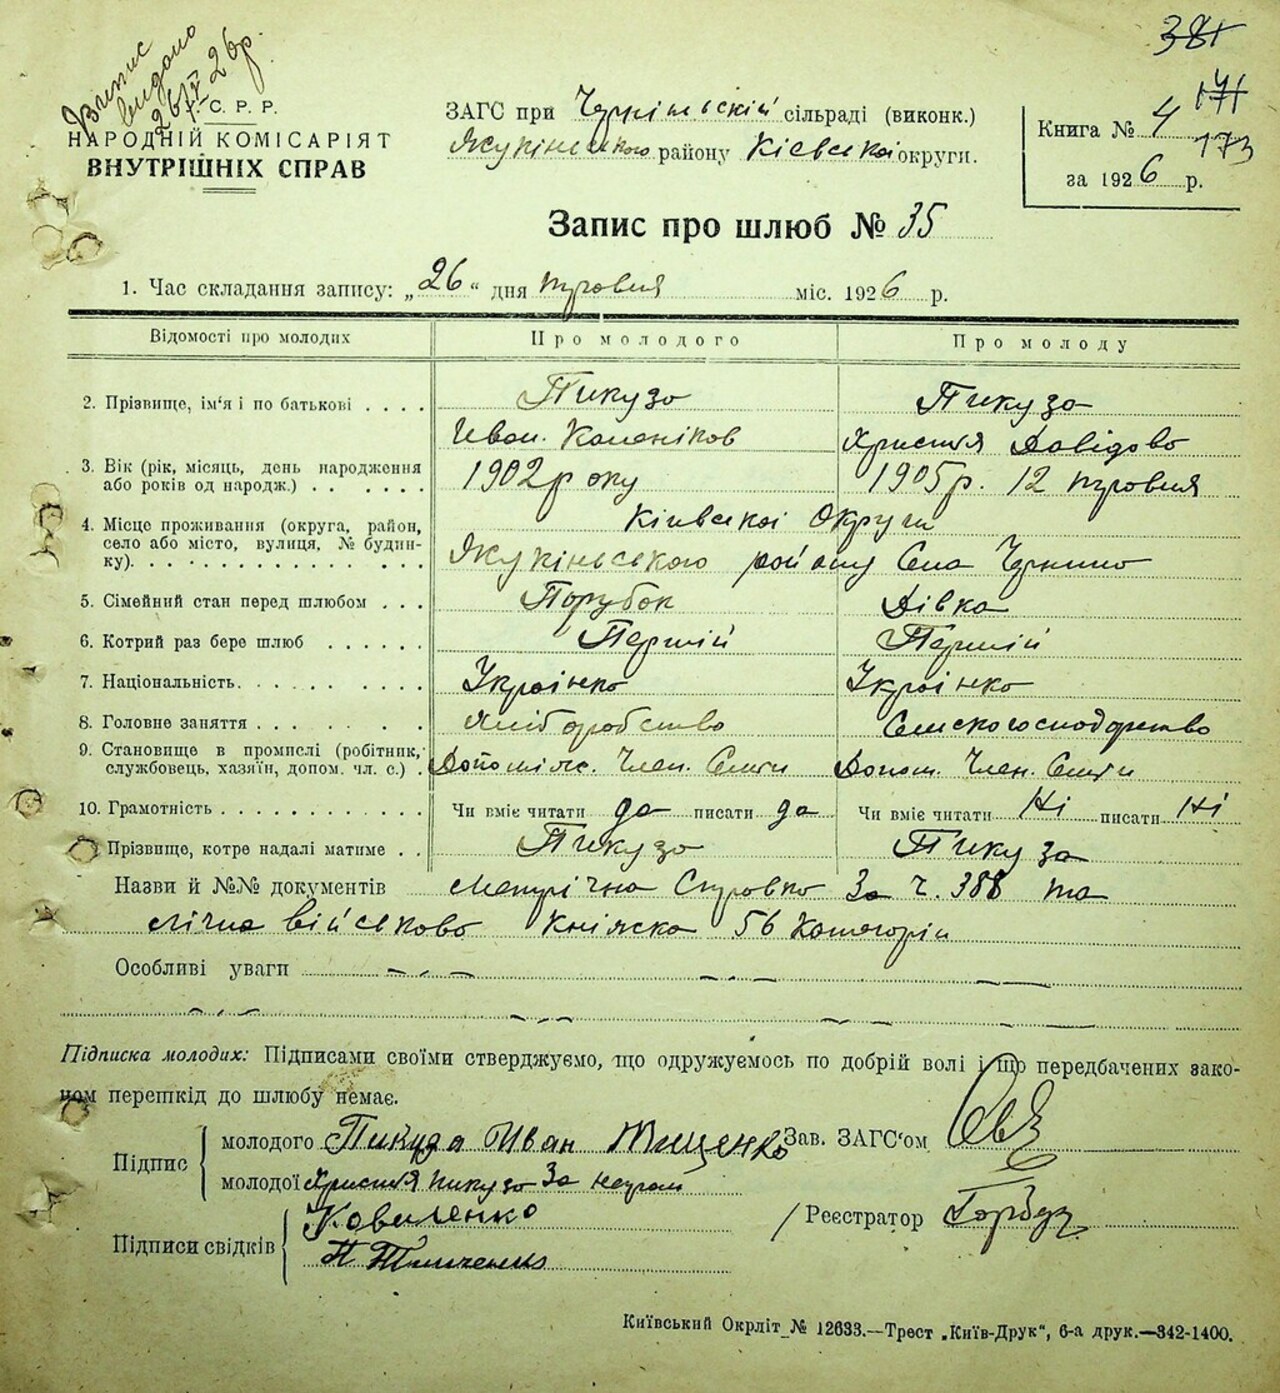 Випис
видано
26/V 26р.
381
171
173
У. С. Р. Р.
НАРОДНІЙ КОМІСАРІЯТ
ВНУТРІШНІХ СПРАВ
ЗАГС при сільраді (виконк.)
району Кієвскоі округи.
Книга № 4
за 1926 р.
Запис про шлюб № 35
1. Час складання запису: „26" дня травня міс. 1926 р.
Відомості про молодих Про молодого Про молоду
2. Прізвище, ім'я і по батькові . . . . Пикуза Пикуза
Иван Христя Давідово
3. Вік (рік, місяць, день народження або років од народж.) . . . . . . 1902 року 1905 р. 12 травня
4. Місце проживання (округа, район, село або місто, вулиця, № будинку). Кієвскоі Округи
району Села
5. Сімейний стан перед шлюбом . . . Порубок Дівка
6. Котрий раз бере шлюб . . . . . . Першій Першій
7. Національність. . . . . . . . . Украінко Украінко
8. Головне заняття . . . . . . Хліборобство
9. Становище в промислі (робітник, службовець, хазяїн, допом. чл. с.) . Член. Семти Допом. Член. Семти
10. Грамотність . . . . . . . . . . . Чи вміє читати да писати да Чи вміє читати Ні писати Ні
Прізвище, котре надалі матиме . . Пикуза Пикуза
Назви й №№ документів Метрічна Справко За ч. 388 та
лічна військово Кніжка 56 Категоріи
Особливі уваги
Підписка молодих: Підписами своїми стверджуємо, що одружуємось по добрій волі і що передбачених зако-
ном перешкід до шлюбу немає.
Підпис молодого Пикуза Иван Тищенко Зав. ЗАГС'ом
молодої Христя Пикуза За
Підписи свідків Коваленко / Реєстратор Горбач
Київський Окрліт № 12633.—Трест „Київ-Друк", 6-а друк.—342-1400.